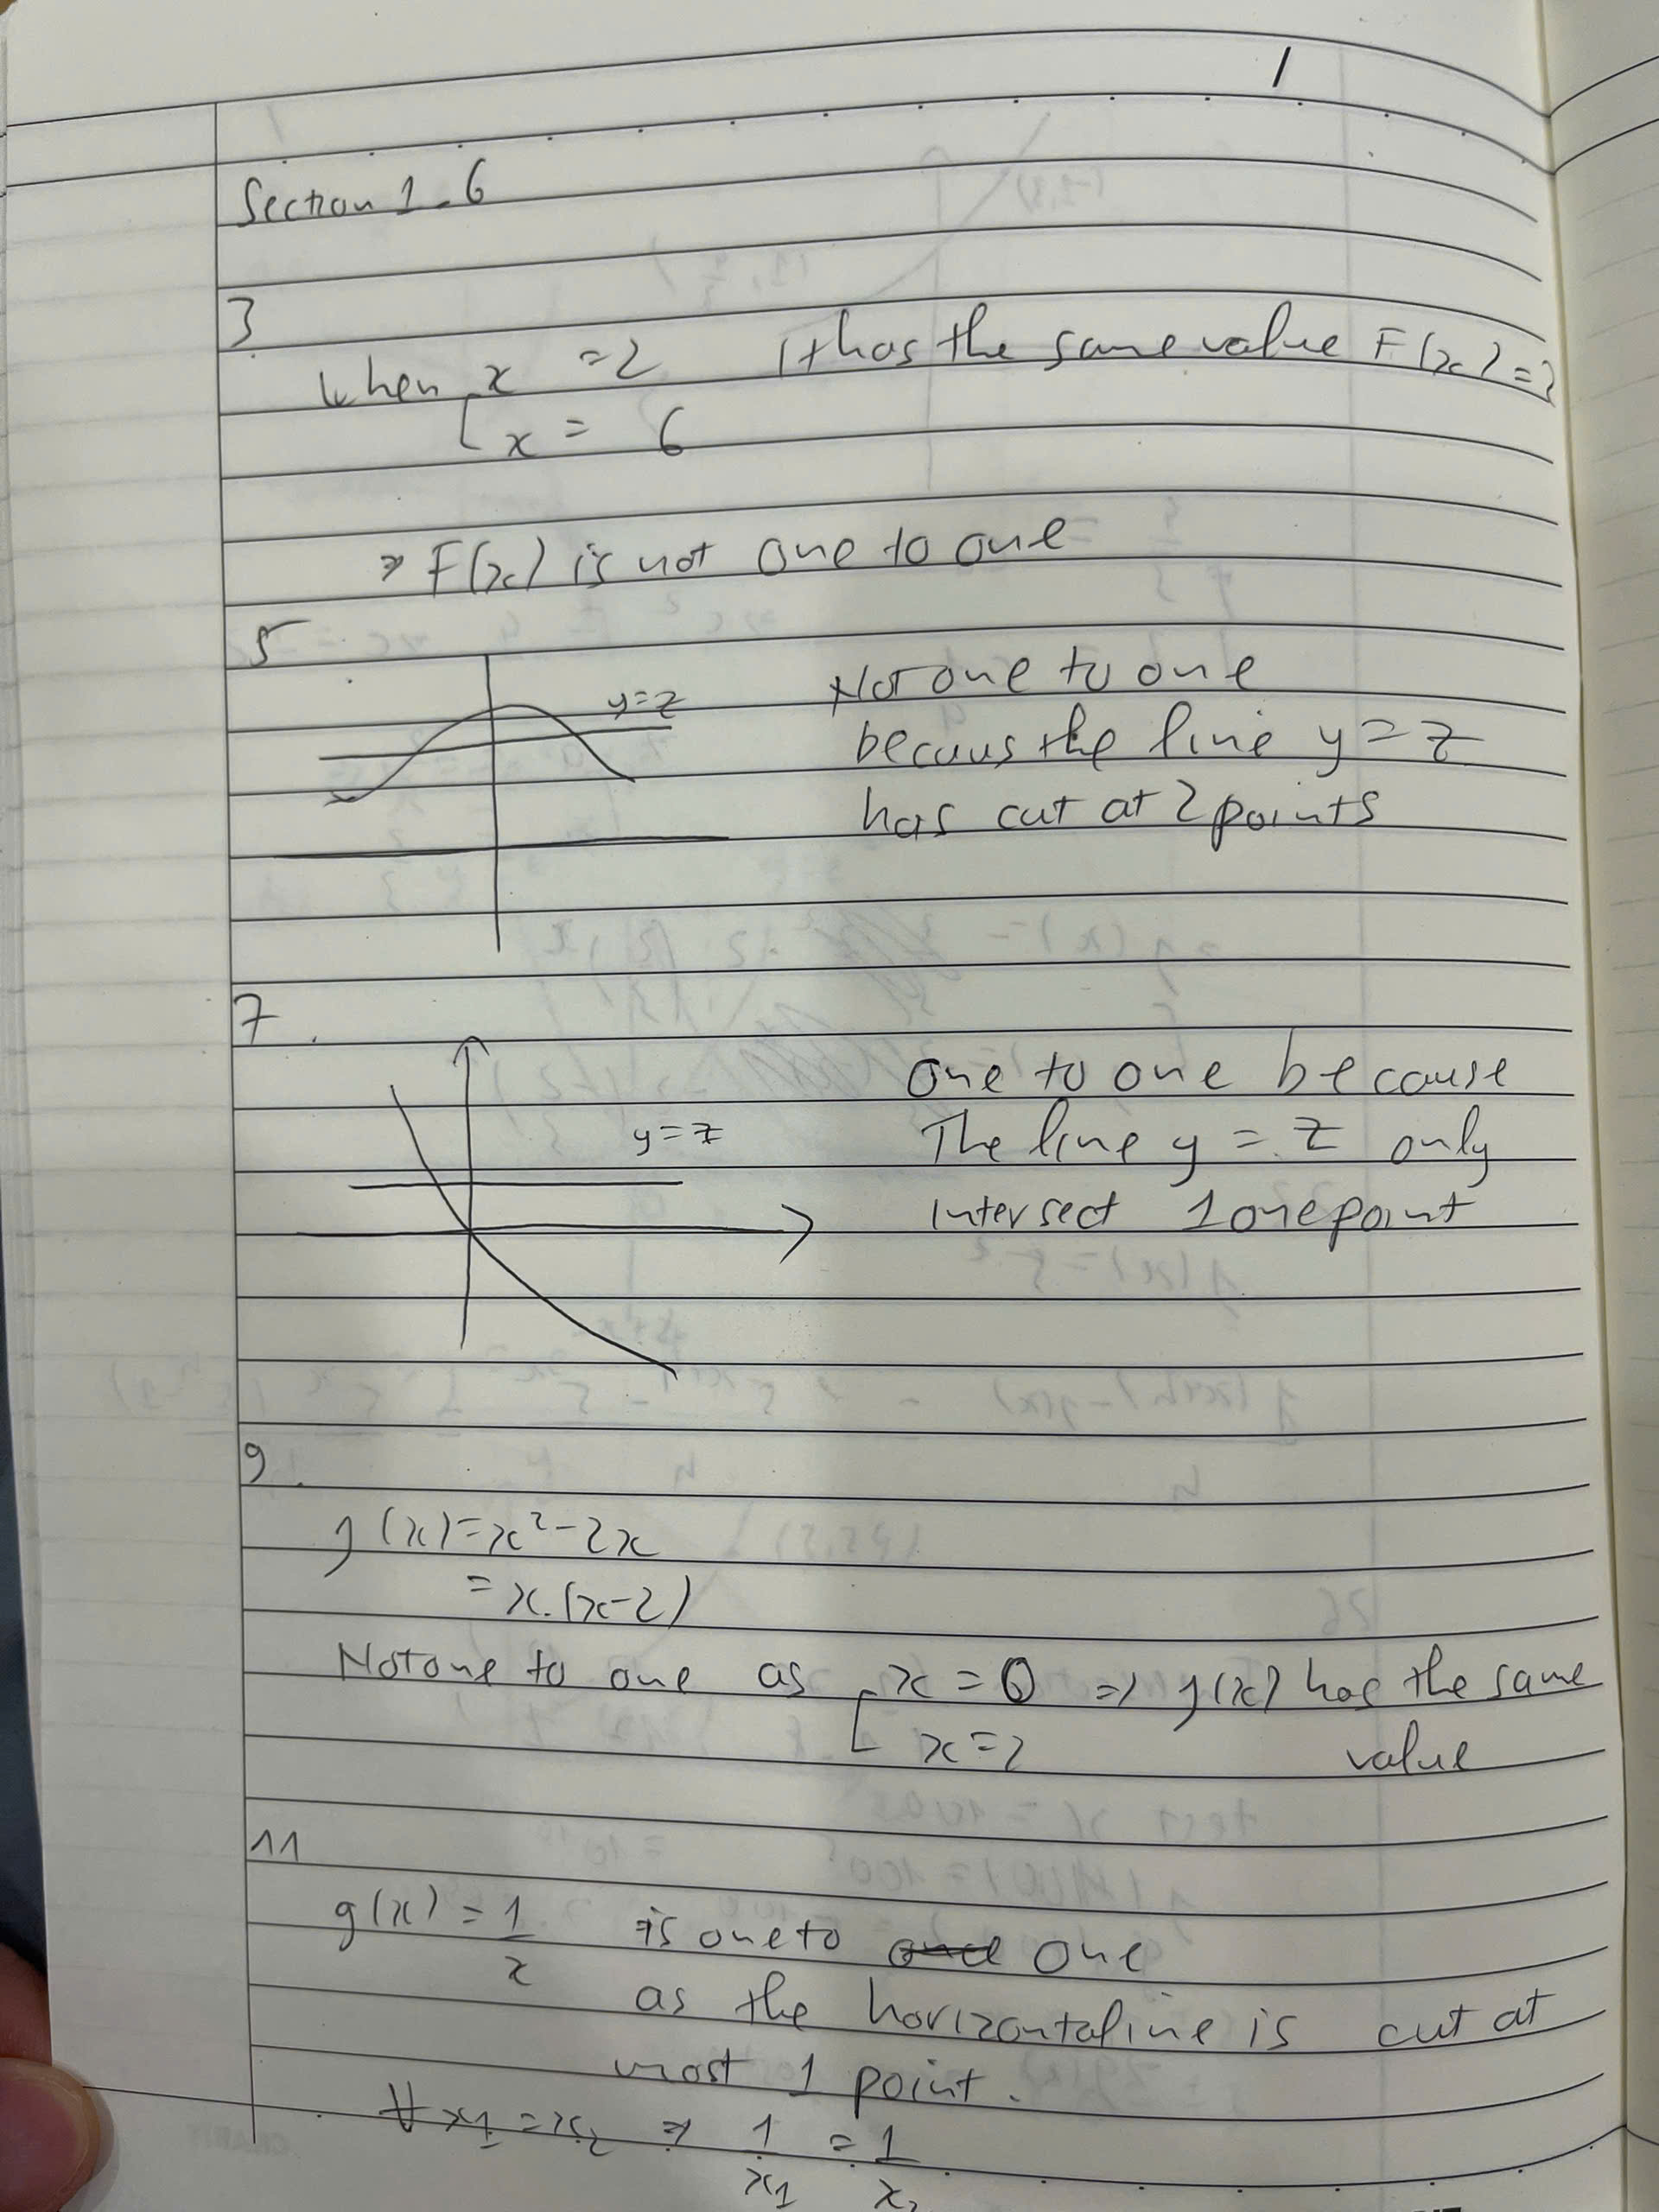 1
Section 1.6
3.
When x = 2 It has the same value F(x) =
[x = 6
⇒ F(x) is not one to one
5.
y=z
Not one to one
becaus the line y=z
has cut at 2 points
7.
y=z
One to one because
The line y = z only
intersect 1 one point
9.
f(x)=x²-2x
= x.(x-2)
Not one to one as [x = 0 ⇒ f(x) has the same
x=2 value
11
g(x) = 1/x is one to one
as the horizontal line is cut at
most 1 point.
∀ x₁ = x₂ ⇒ 1/x₁ = 1/x₂